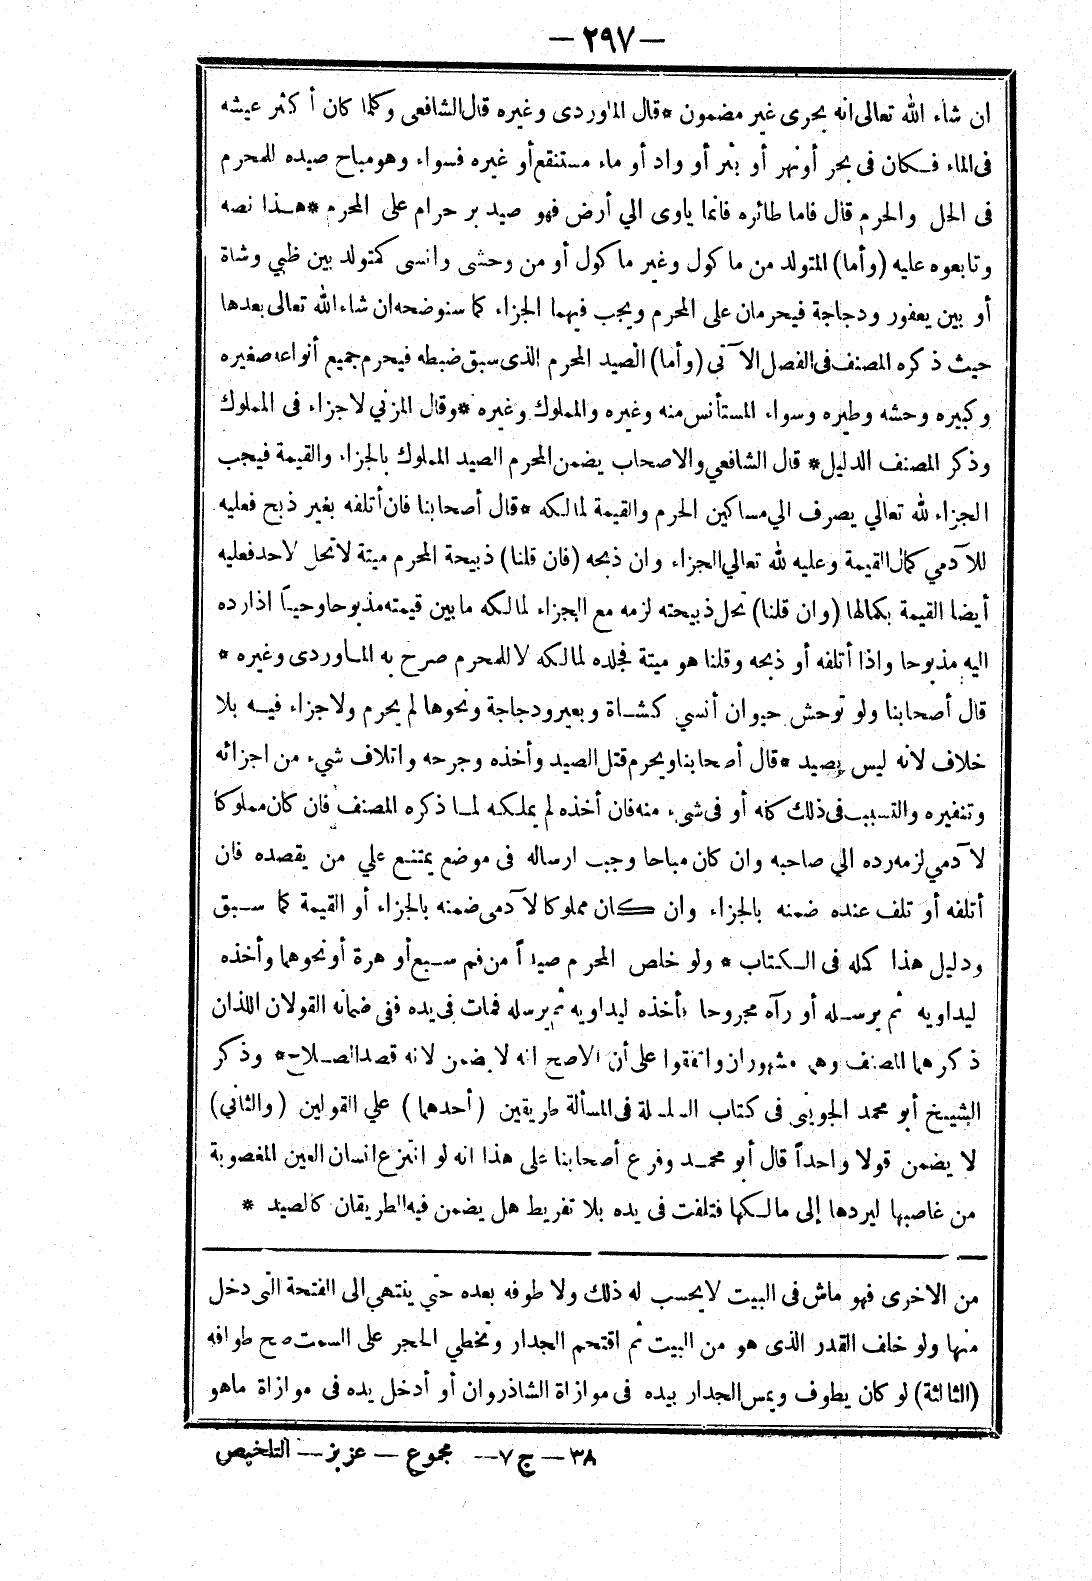 — ٢٩٧ —
ان شاء الله تعالى انه بحرى غير مضمون * قال الماوردى وغيره قال الشافعي وكلما كان أكثر عيشه
فى الماء فكان فى بحر أو نهر أو بئر أو واد أو ماء مستنقع أو غيره فسواء وهو مباح صيده للمحرم
فى الحل والحرم قال فاما طائره فانما ياوى الي أرض فهو صيد بر حرام على المحرم * هذا نصه
وتابعوه عليه (وأما) المتولد من ما كول وغير ما كول أو من وحشى وانسى كمتولد بين ظبي وشاة
أو بين يعفور ودجاجة فيحرمان على المحرم ويجب فيهما الجزاء كما سنوضحه ان شاء الله تعالى بعدها
حيث ذكره المصنف فى الفصل الآتى (وأما) الصيد المحرم الذى سبق ضبطه فيحرم جميع أنواعه صغيره
وكبيره وحشه وطيره وسواء المستأنس منه وغيره والمملوك وغيره * وقال المزني لاجزاء فى المملوك
وذكر المصنف الدليل * قال الشافعي والاصحاب يضمن المحرم الصيد المملوك بالجزاء والقيمة فيجب
الجزاء لله تعالي يصرف الي مساكين الحرم والقيمة لمالكه * قال أصحابنا فان أتلفه بغير ذبح فعليه
للآدمي كمال القيمة وعليه لله تعالي الجزاء وان ذبحه (فان قلنا) ذبيحة المحرم ميتة لاتحل لاحد فعليه
أيضا القيمة بكمالها (وان قلنا) تحل ذبيحته لزمه مع الجزاء لمالكه مابين قيمته مذبوحا وحيـاً اذا رده
اليه مذبوحا واذا أتلفه أو ذبحه وقلنا هو ميتة فجلده لمالكه لا للمحرم صرح به الماوردى وغيره *
قال أصحابنا ولو توحش حيوان أنسي كشاة وبعير ودجاجة ونحوها لم يحرم ولاجزاء فيه بلا
خلاف لانه ليس بصيد * قال أصحابنا ويحرم قتل الصيد وأخذه وجرحه واتلاف شيء من اجزائه
وتنفيره والتسبب فى ذلك كله أو فى شيء منه فان أخذه لم يملكه لما ذكره المصنف فان كان مملوكا
لآدمي لزمه رده الي صاحبه وان كان مباحا وجب ارساله فى موضع يمتنع علي من يقصده فان
أتلفه أو تلف عنده ضمنه بالجزاء وان كان مملوكا لآدمى ضمنه بالجزاء أو القيمة كما سبق
ودليل هذا كله فى الكتاب * ولو خلص المحرم صيداً من فم سبع أو هرة أو نحوهما وأخذه
ليداويه ثم يرسله أو رآه مجروحا فأخذه ليداويه ثم يرسله فمات فى يده ففى ضمانه القولان اللذان
ذكرهما المصنف وهما مشهوران واتفقوا على أن الاصح انه لا يضمن لانه قصد الصلاح * وذكر
الشيخ أبو محمد الجوينى فى كتاب السلسلة فى المسألة طريقين (أحدهما) علي القولين (والثاني)
لا يضمن قولا واحداً قال أبو محمد وفرع أصحابنا على هذا انه لو انتزع انسان العين المغصوبة
من غاصبها ليردها إلى مالكها فتلفت فى يده بلا تفريط هل يضمن فيه الطريقان كالصيد *
من الاخرى فهو ماش فى البيت لايحسب له ذلك ولا طوفه بعده حتي ينتهي الى الفتحة التى دخل
منها ولو خلف القدر الذى هو من البيت ثم اقتحم الجدار وتخطي الحجر على السمت صح طوافه
(الثالثة) لو كان يطوف ويمس الجدار بيده فى موازاة الشاذروان أو أدخل يده فى موازاة ماهو
٣٨ — ج ٧ — مجموع — عزيز — التلخيص